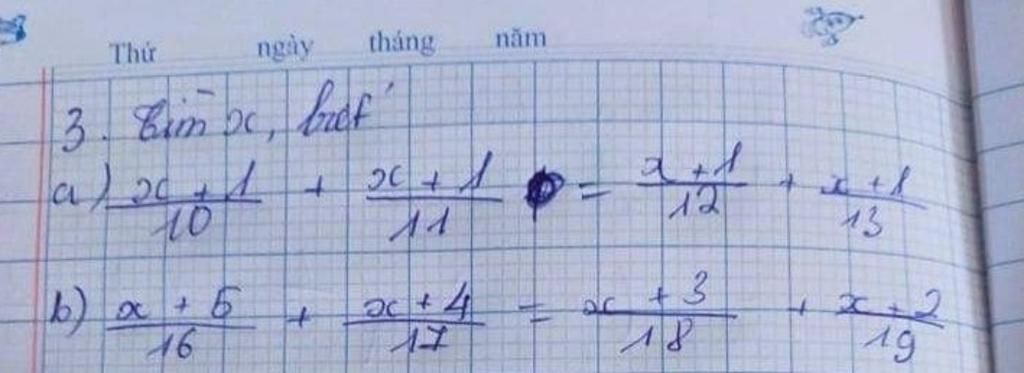 Thứ ngày tháng năm
3. Tìm x, biết
a) \frac{x + 1}{10} + \frac{x + 1}{11} = \frac{x + 1}{12} + \frac{x + 1}{13}
b) \frac{x + 5}{16} + \frac{x + 4}{17} = \frac{x + 3}{18} + \frac{x + 2}{19}